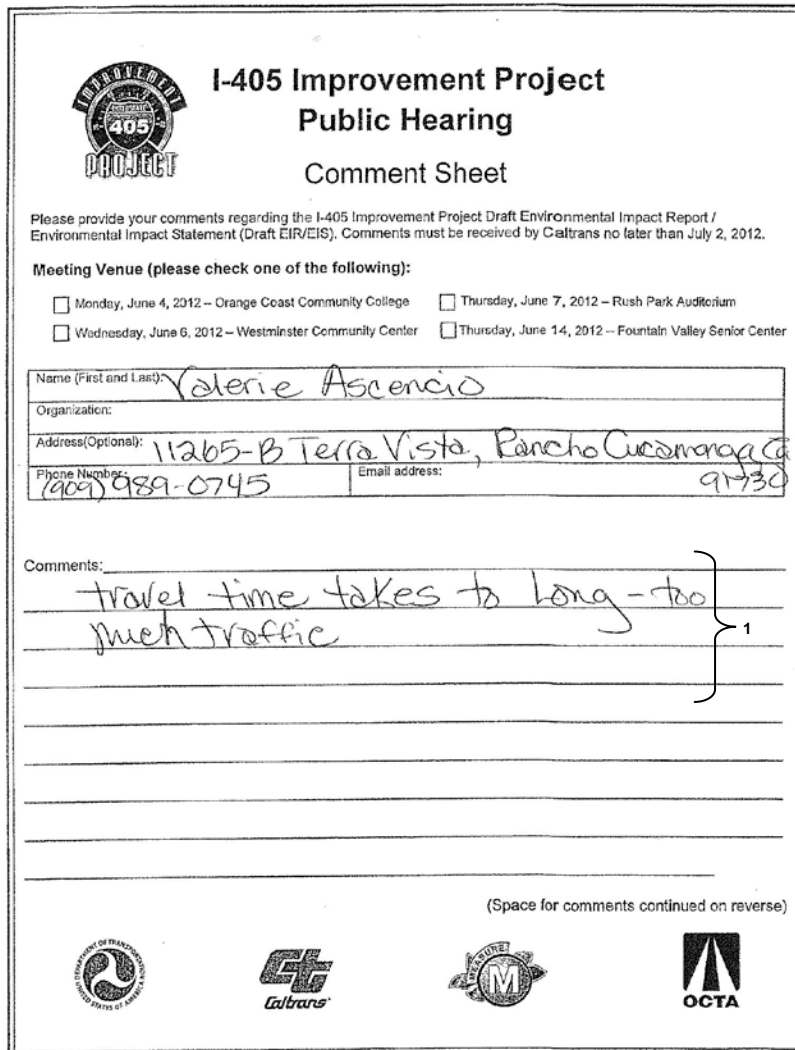 I-405 Improvement Project
Public Hearing
Comment Sheet
IMPROVEMENT
405
PROJECT
Please provide your comments regarding the I-405 Improvement Project Draft Environmental Impact Report /
Environmental Impact Statement (Draft EIR/EIS). Comments must be received by Caltrans no later than July 2, 2012.
Meeting Venue (please check one of the following):
Monday, June 4, 2012 – Orange Coast Community College
Thursday, June 7, 2012 – Rush Park Auditorium
Wednesday, June 6, 2012 – Westminster Community Center
Thursday, June 14, 2012 – Fountain Valley Senior Center
Name (First and Last): Valerie Ascencio
Organization:
Address(Optional): 11265-B Terra Vista, Rancho Cucamonga Ca
Phone Number: (909) 989-0745
Email address:
91730
Comments:
travel time takes to Long - too
much traffic
1
(Space for comments continued on reverse)
DEPARTMENT OF TRANSPORTATION
UNITED STATES OF AMERICA
Ct
Caltrans
MEASURE
M
OCTA